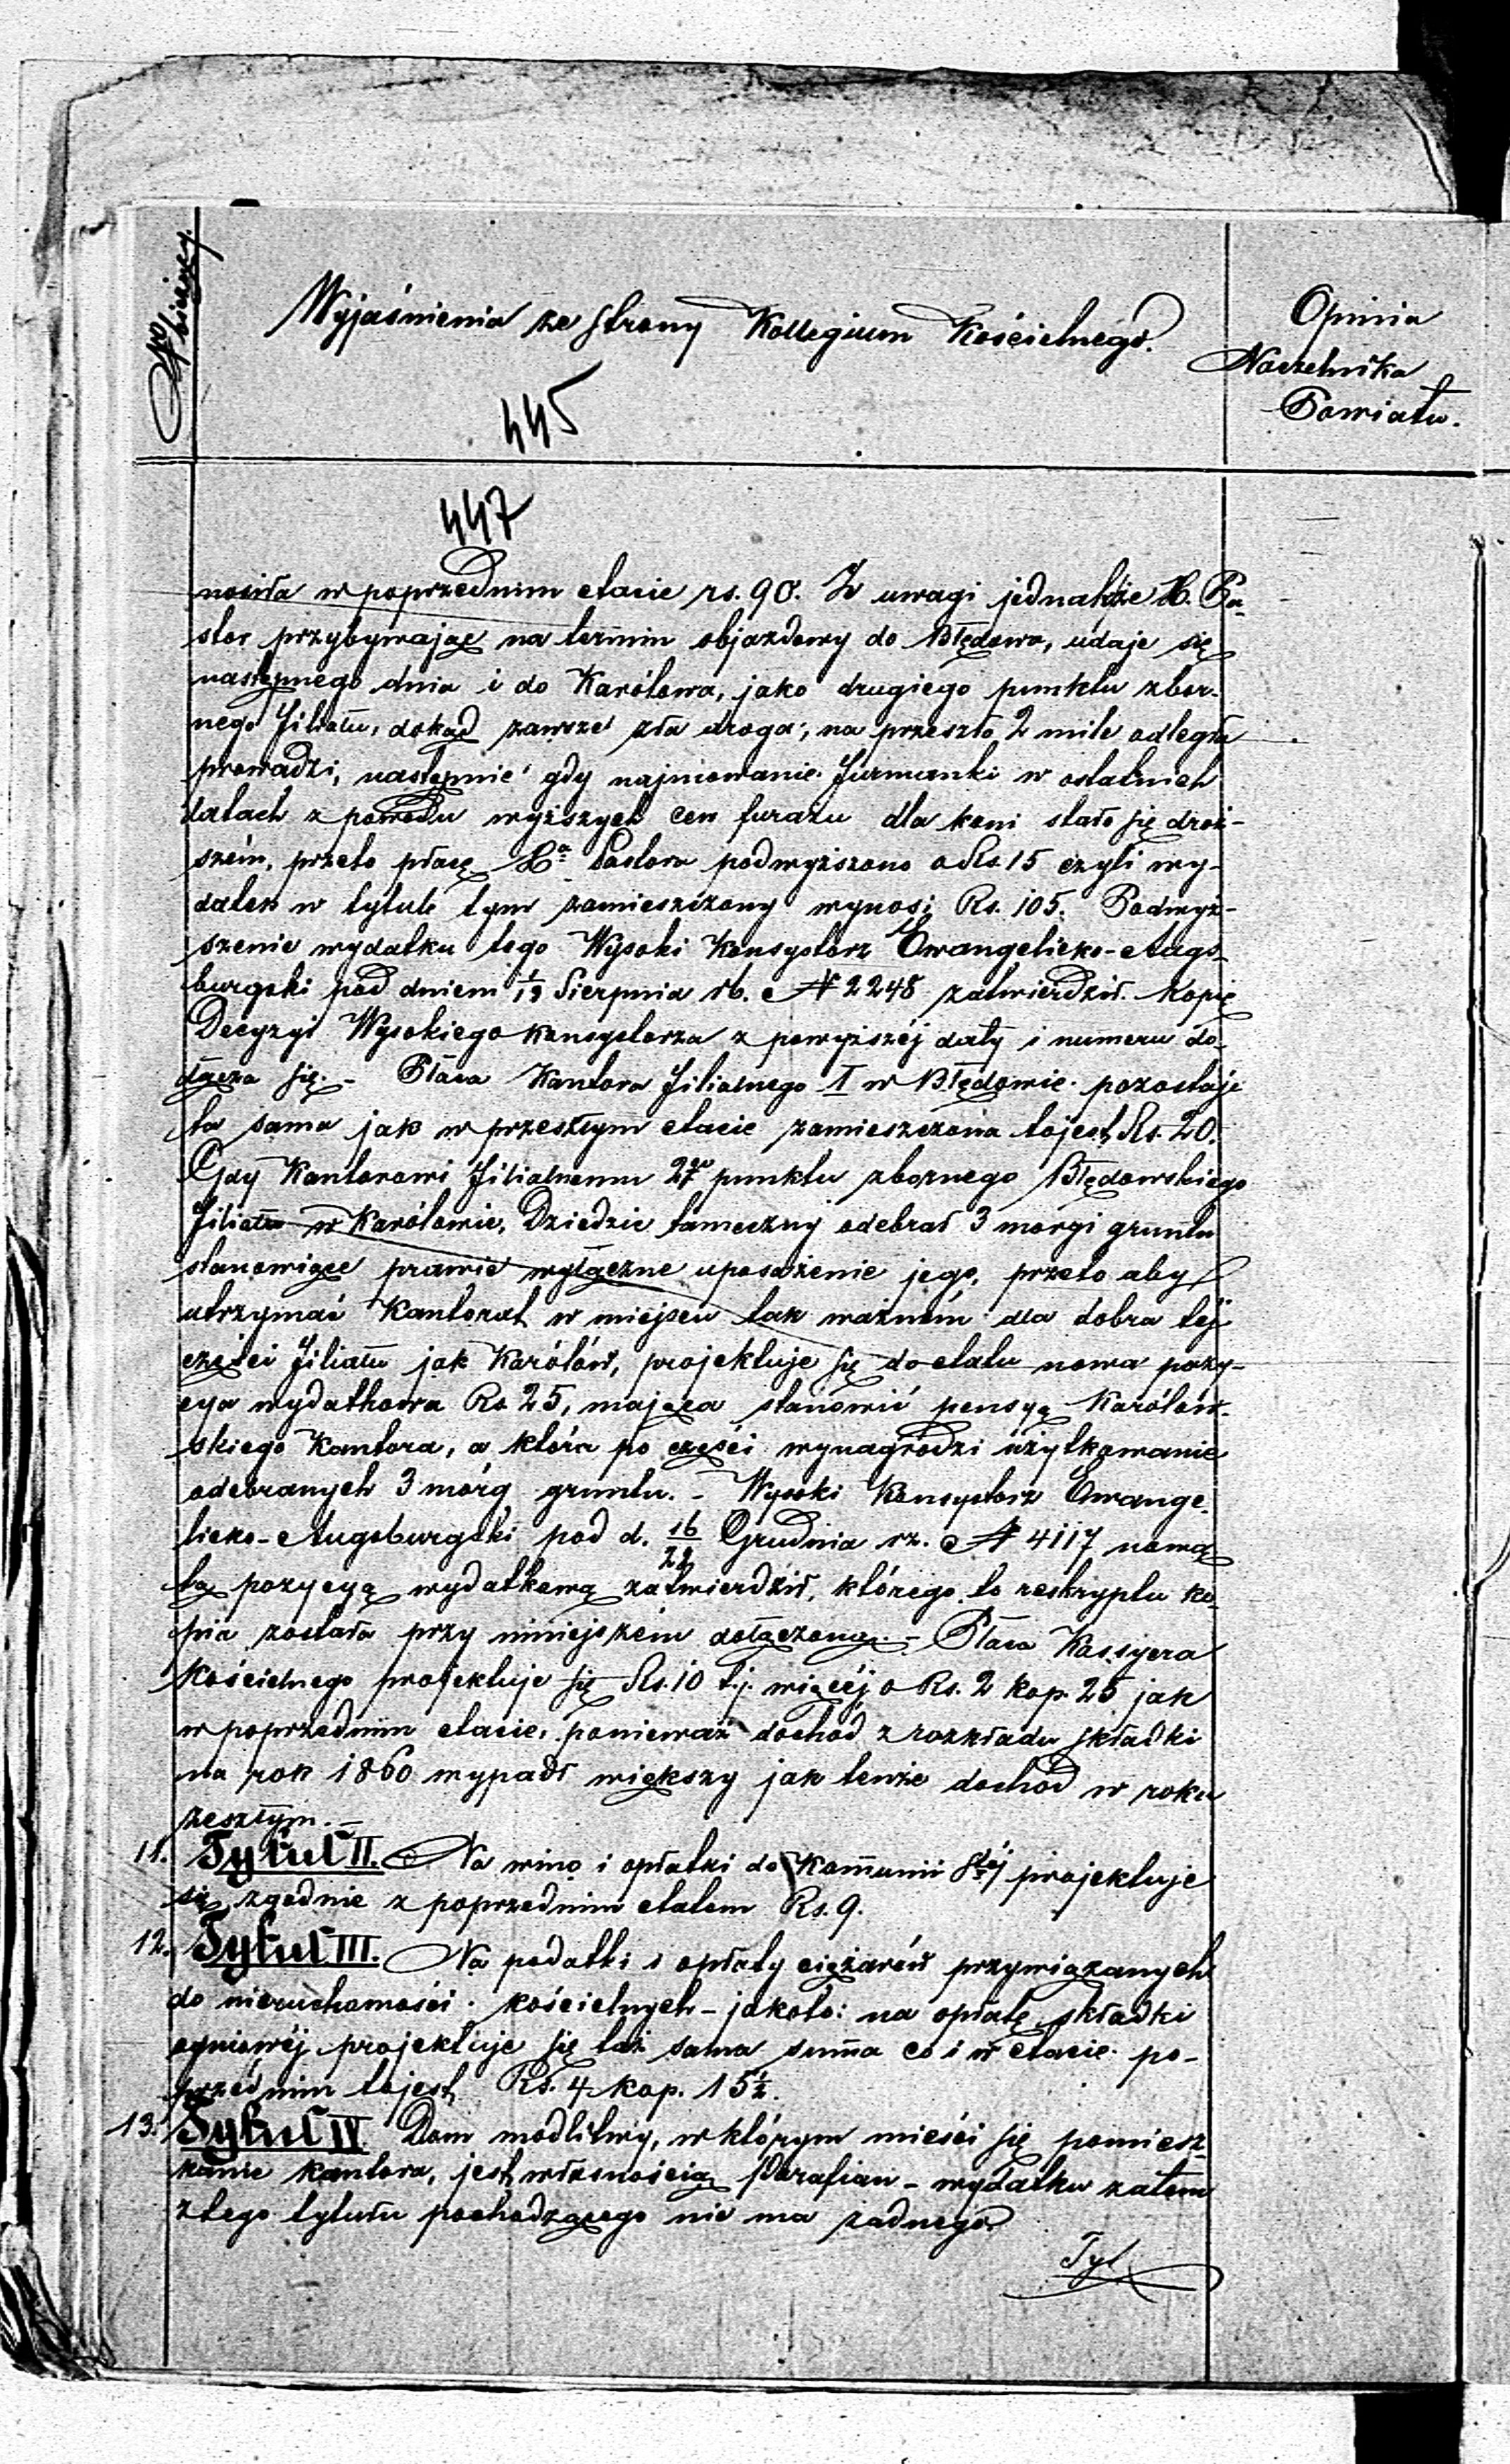 № bieżący.
Wyjaśnienia ze strony Kollegium Kościelnego.
Opinia
Naczelnika
Powiatu.
445
447
nosiła w poprzednim etacie rs. 90. Z uwagi jednakże X. Pa-
stor przybywając na termin objazdowy do Błędowa, udaje się
następnego dnia i do Karólowa, jako drugiego punktu zbor-
nego filiału, dokąd zawsze zła droga, na przeszło 2 mile odległa
prowadzi, następnie gdy najmowanie furmanki w ostatnich
latach z powodu wyższych cen furażu dla koni stało się droż-
szém, przeto płacę Xa Pastora podwyższono o Rs. 15 czyli wy-
datek w tytule tym zamieszczony wynosi Rs. 105. Podwyż-
szenie wydatku tego Wysoki Konsystorz Ewangelicko-Augs-
burgski pod dniem 1/13 Sierpnia rb. № 2248 zatwierdził. Kopię
Decyzyi Wysokiego Konsystorza z powyższéj daty i numeru do-
łącza się. - Płaca Kantora filialnego I w Błędowie pozostaje
ta sama jak w przeszłym etacie zamieszczona tojest Rs. 20.
Gdy Kantorowi filialnemu 2go punktu zbornego Błędowskiego
filiału w Karólowie, Dziedzic tameczny odebrał 3 morgi gruntu
stanowiące prawie wyłączne uposażenie jego, przeto aby
utrzymać Kantorat w miejscu tak ważném dla dobra téj
części filiału jak Karólów, projektuje się do etatu nowa pozy-
cya wydatkowa Rs 25, mająca stanowić pensyą Karólow-
skiego Kantora, a która po części wynagrodzi użytkowanie
odebranych 3 mórg gruntu. - Wysoki Konsystorz Ewange-
licko-Augsburgski pod d. 16/28 Grudnia rz. № 4117 nową
tą pozycyą wydatkową zatwierdził, którego to reskryptu ko-
pia została przy niniejszém dołączona. - Płaca Kassyera
Kościelnego projektuje się Rs. 10 t.j. więcéj o Rs. 2 kop. 25 jak
w poprzednim etacie, ponieważ dochód z rozkładu składki
na rok 1860 wypadł większy jak tenże dochód w roku
zeszłym. -
11. Tytuł II. Na wino i opłatki do Kommunii Stéj projektuje
się zgodnie z poprzednim etatem Rs. 9.
12. Tytuł III. Na podatki i opłaty ciężarów przywiązanych
do nieruchomości kościelnych - jakoto: na opłatę składki
ogniowéj projektuje się taż sama summa co i w etacie po-
przednim tojest Rs. 4 kop. 15½.
13. Tytuł IV Dom modlitwy, w którym mieści się pomiesz-
kanie Kantora, jest własnością Parafian - wydatku zatem
z tego tytułu pochodzącego nie ma żadnego
Tyt